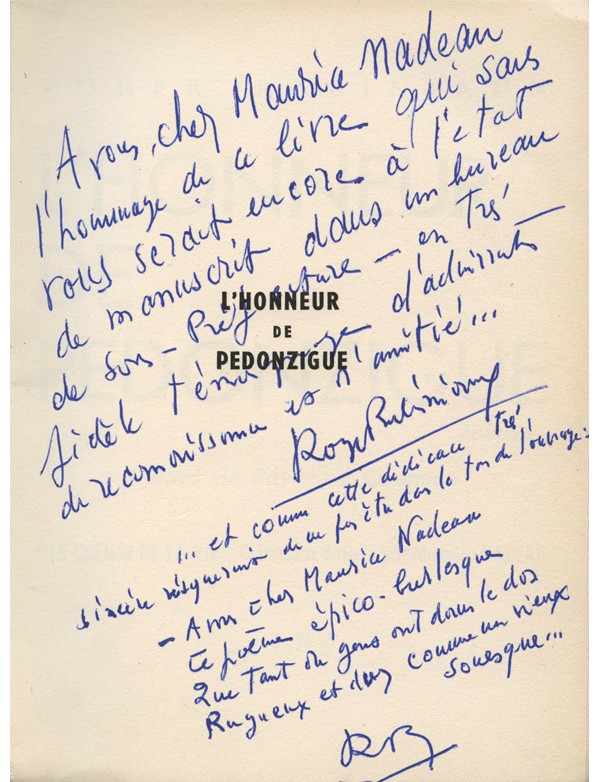 A vous, cher Maurice Nadeau
l'hommage de ce livre qui sans
vous serait encore à l'état
de manuscrit dans un bureau
de Sous-Préfecture – en très
fidèle témoignage d'admiration
de reconnaissance et d'amitié...
L'HONNEUR
DE
PEDONZIGUE
Roger Rabiniaux
... et comme cette dédicace très
sincère risquerait de ne pas être dans le ton de l'ouvrage:
– A vous cher Maurice Nadeau
Ce poème épico-burlesque
Que tant de gens ont dans le dos
Rugueux et dur comme un vieux
RB